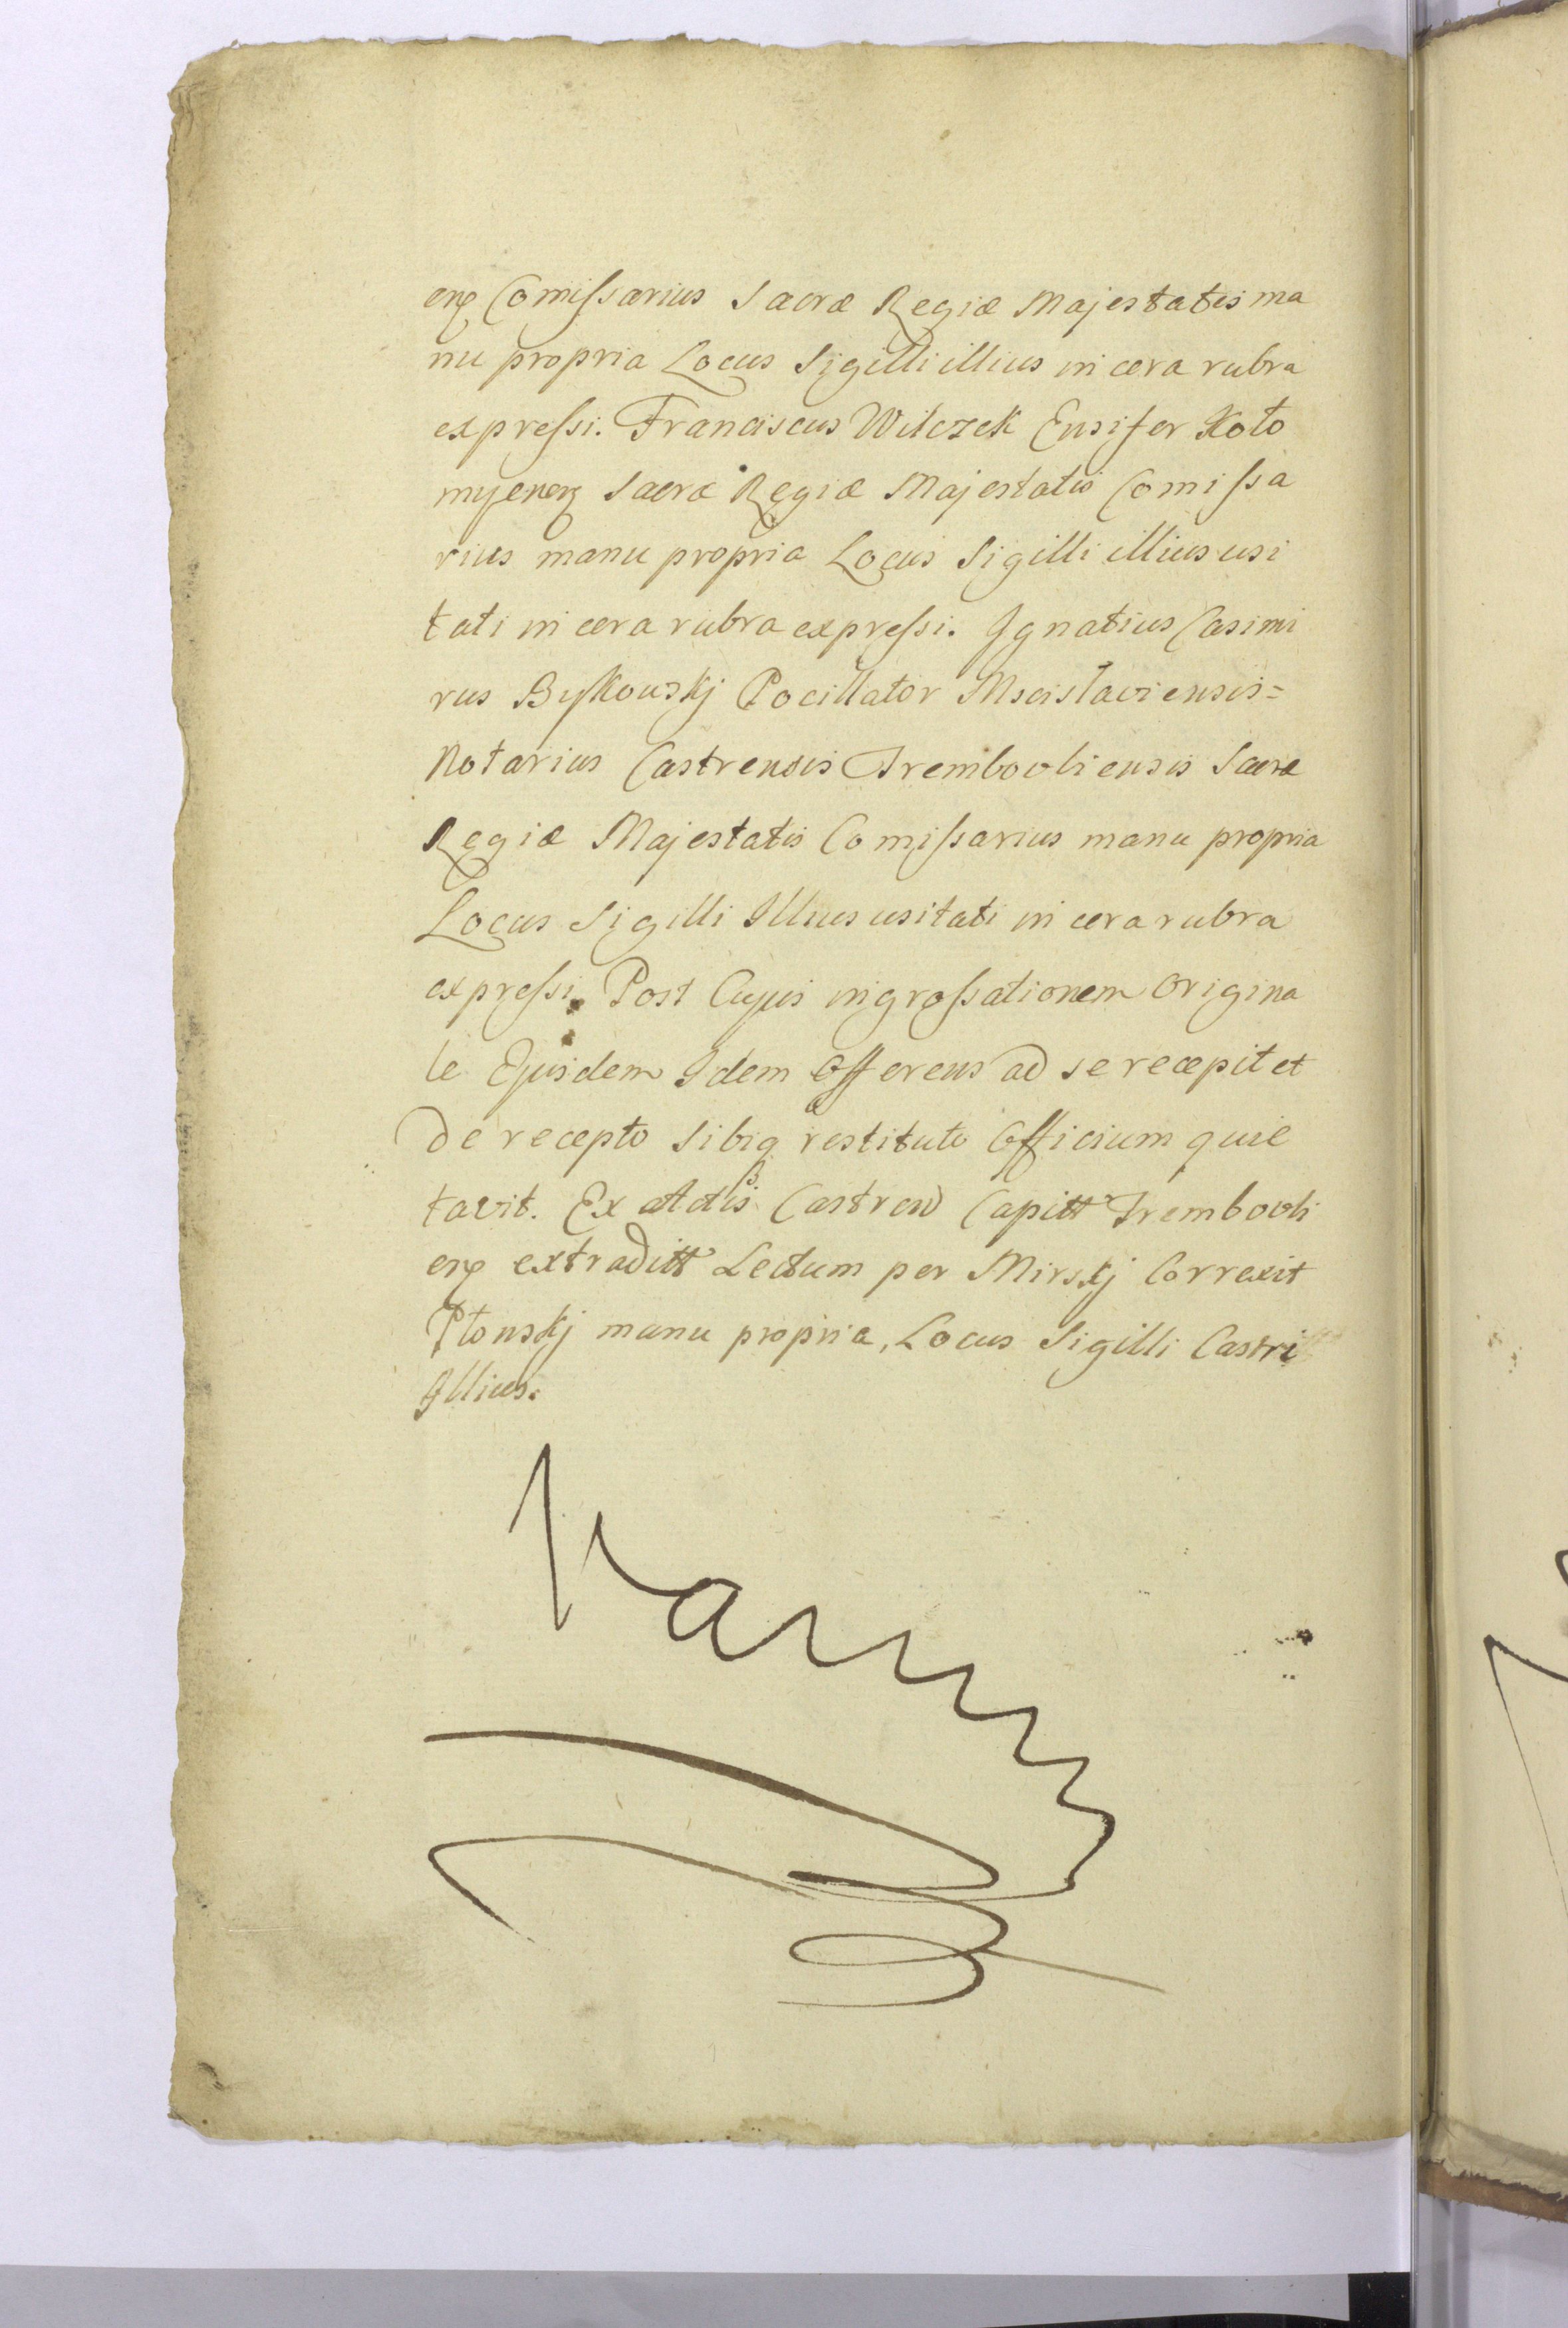 enꝭ Comiſsarius Sacræ Regiæ Majestatis ma
nu propria Locus Sigilli illius in cera rubra
expreſsi. Franciscus Wilczek Ensifer Koło
myenꝭ Sacræ Regiæ Majestatis Comiſsa
rius manu propria Locus Sigilli illius usi
tati in cera rubra expreſsi. Ignatius Casimi
rus Bykowskj Pocillator Mscisłaviensis=
Notarius Castrensis Trembovliensis Sacræ
Regiæ Majestatis Comiſsarius manu propria
Locus Sigilli Illius usitati in cera rubra
expreſsi. Post Cujus ingroſsationem Origina
le Ejusdem Idem Offerens ad se recepit et
de recepto Sibiq restituto Officium quie
tavit. Ex Actis Castren Capitt Trembovli
enꝭ extraditt Lectum per Mirskj Correxit
Płonskj manu propria, Locus Sigilli Castri
Illius.